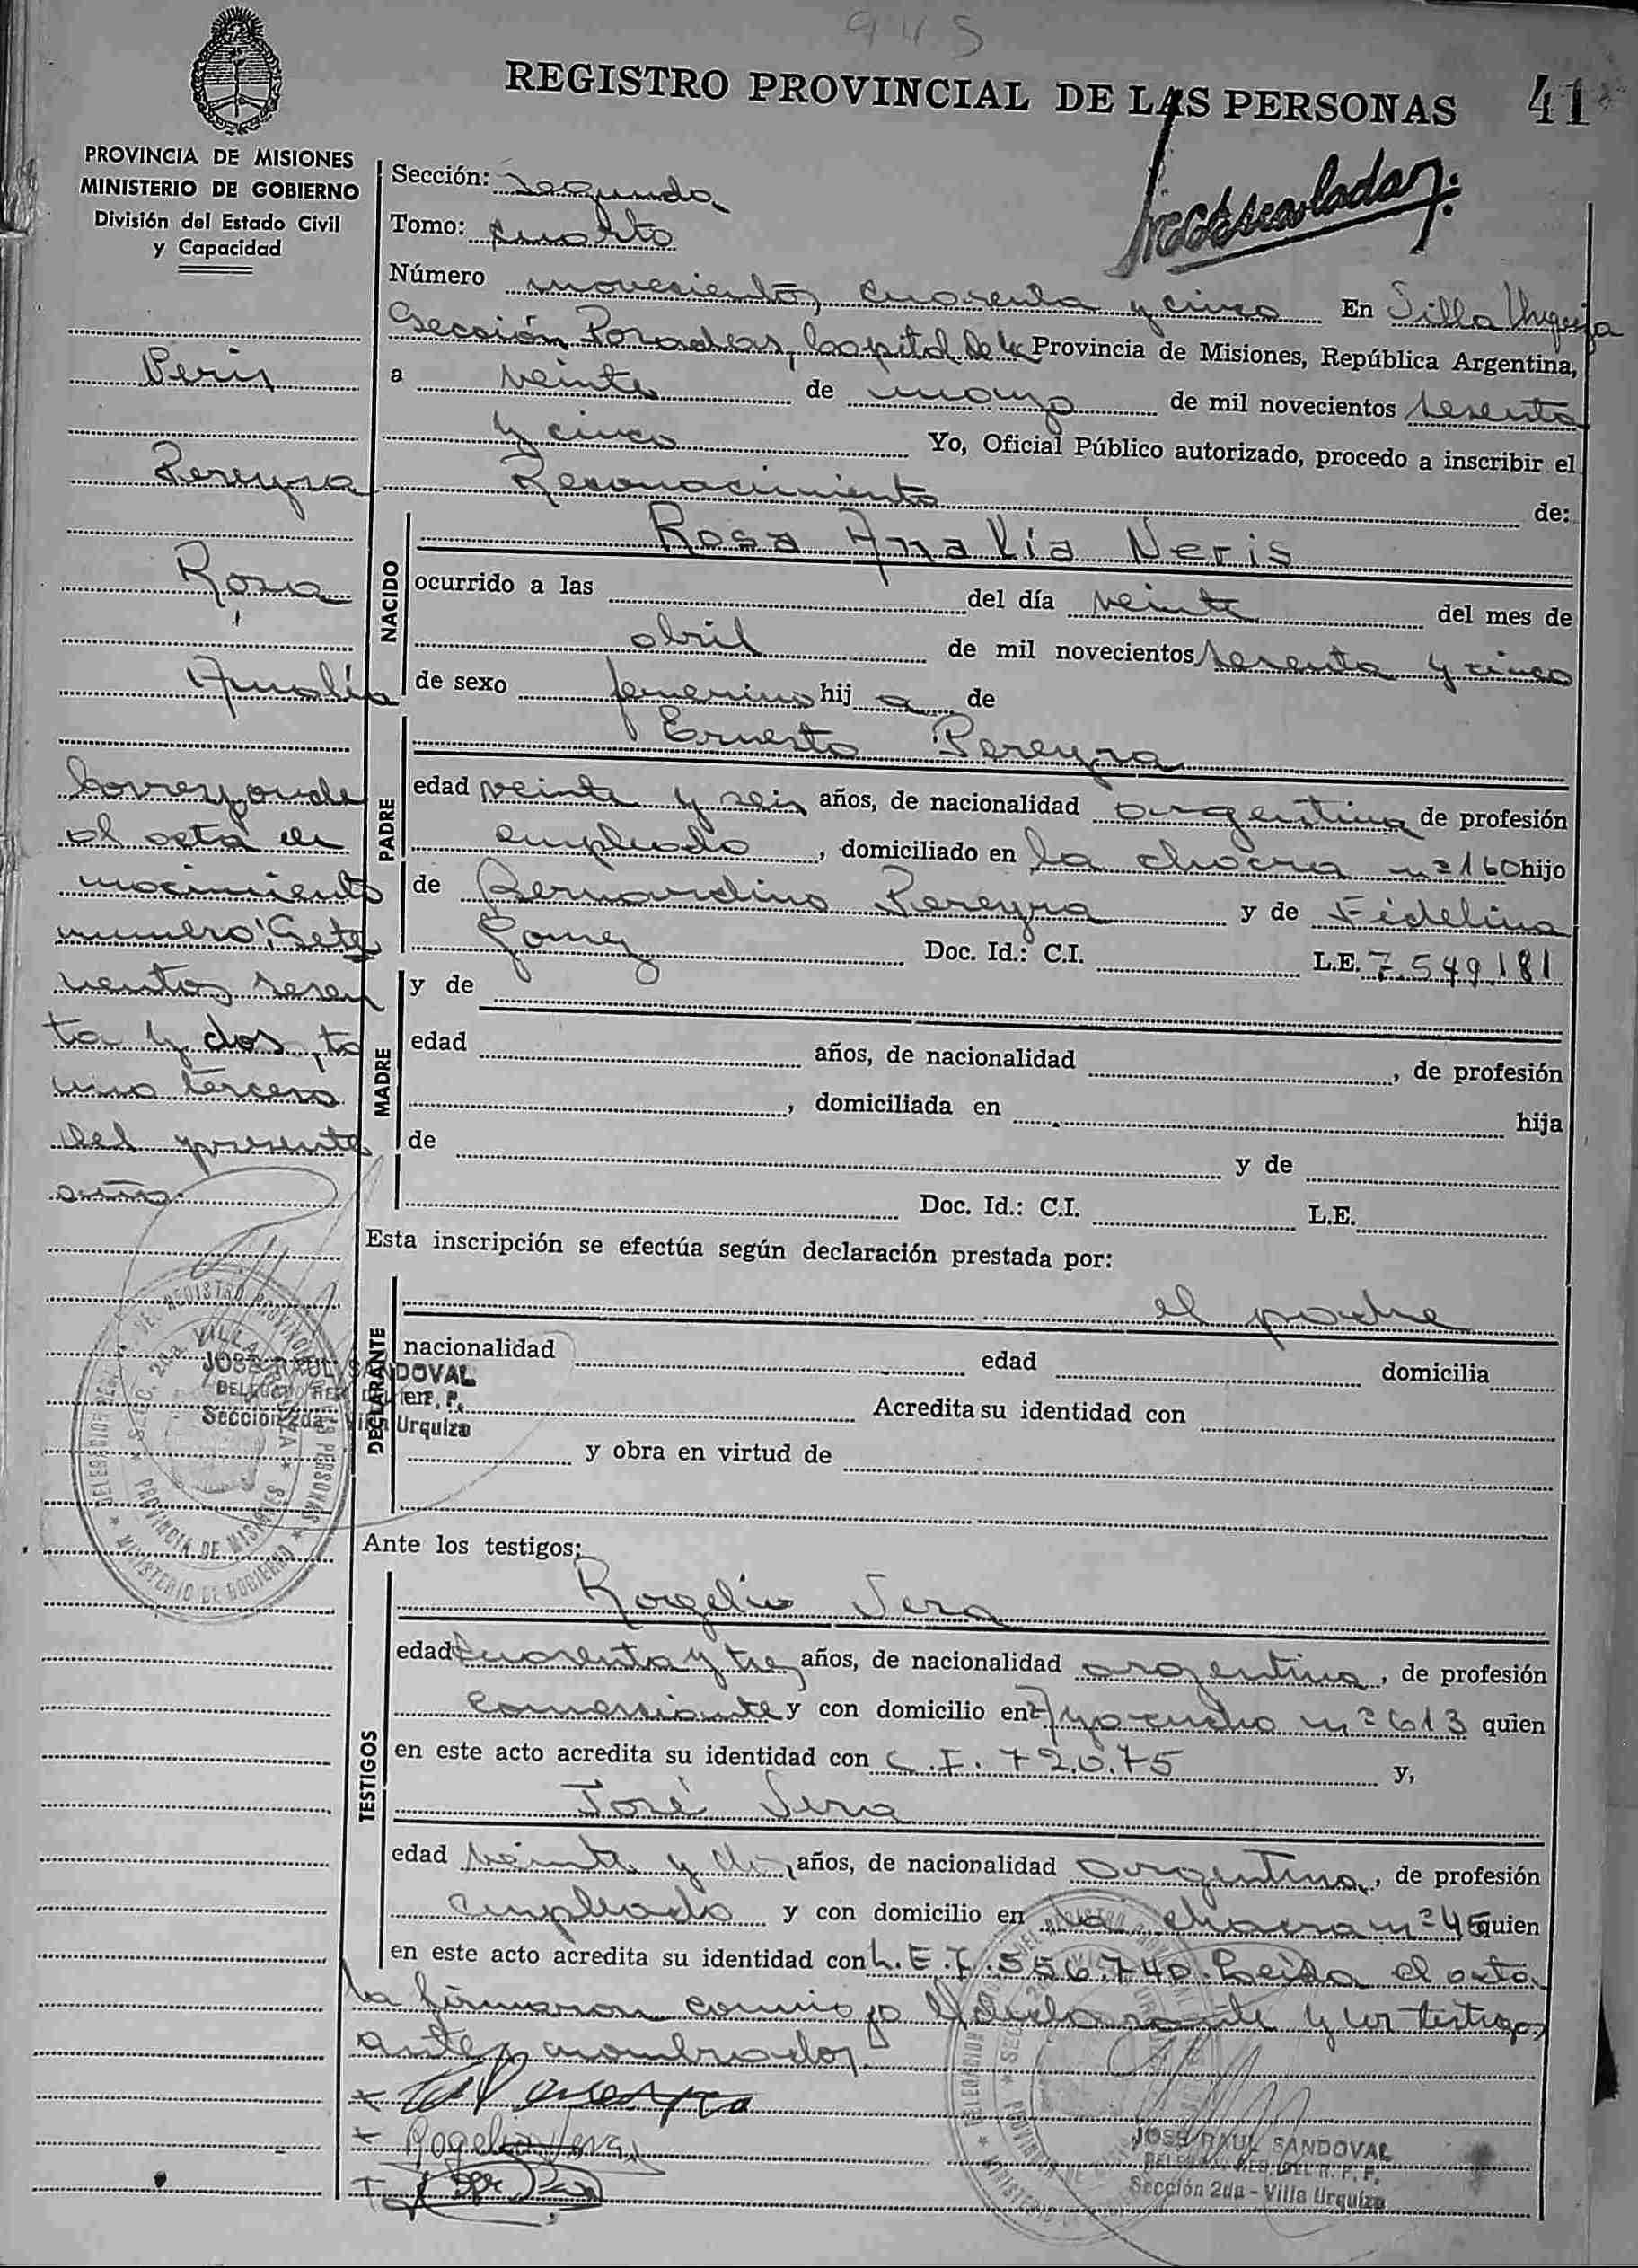 945
REGISTRO PROVINCIAL DE LAS PERSONAS 41
PROVINCIA DE MISIONES
MINISTERIO DE GOBIERNO
División del Estado Civil
y Capacidad
Neris
Pereyra
Rosa
Amalia
Corresponde
al acta de
nacimiento
numero: Sete
cientos sesen
ta y dos, to
mo tercero
del presente
año.
JOSE RAUL SANDOVAL
Sección 2da - Villa Urquiza
Sección: Segunda
Tomo: cuarto
Número novecientos cuarenta y cinco En Villa Urquiza
Sección Posadas, Capital de la Provincia de Misiones, República Argentina,
a veinte de mayo de mil novecientos sesenta
y cinco Yo, Oficial Público autorizado, procedo a inscribir el
Reconocimiento de:
NACIDO
Rosa Amalia Neris
ocurrido a las del día veinte del mes de
abril de mil novecientos sesenta y cinco
de sexo femenino hij a de
PADRE
Ernesto Pereyra
edad veinte y seis años, de nacionalidad argentina de profesión
empleado, domiciliado en la chacra nº 160 hijo
de Bernardino Pereyra y de Fidelina
Gomez Doc. Id.: C.I. L.E. 7.549.181
MADRE
y de
edad años, de nacionalidad , de profesión
, domiciliada en hija
de y de
Doc. Id.: C.I. L.E.
Esta inscripción se efectúa según declaración prestada por:
DECLARANTE
el padre
nacionalidad edad domicilia
Acredita su identidad con
y obra en virtud de
Ante los testigos:
TESTIGOS
Rogelio Vera
edad cuarenta y tres años, de nacionalidad argentina, de profesión
comersiante y con domicilio en Ayacucho nº 613 quien
en este acto acredita su identidad con C.I. 72.075 y,
José Vera
edad veinte y años, de nacionalidad argentina, de profesión
empleado y con domicilio en la chacra nº 45 quien
en este acto acredita su identidad con L.E. 7.556.740. Leida el acta
la firmaron conmigo el declarante y los testigos
antes nombrados.
Rogelio Vera
JOSE RAUL SANDOVAL
Sección 2da - Villa Urquiza